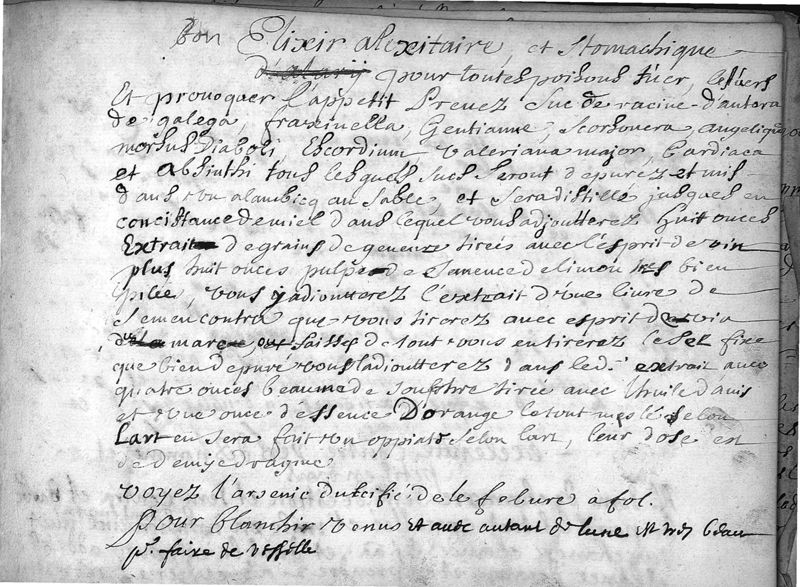 Bon Elixir alexitaire, et stomachique
pour toutes poisons tuer, les vers
Et provoquer l'appetit Prenez suc de racine d'antora
de galega, fraxinella, Gentianne, scorsonera, angelique
morsus Diaboli, Escordium, Valeriana major, Cardiaca
et absinthi tous lesquels sucs seront depurez et mis
dans un alambicq au sable et sera distillé jusques en
concistance de miel dans lequel vous adjoutterez huit onces
Extrait de grains de genevre tirées avec l'esprit de vin
plus huit onces pulpe de semence de limon bien
pilée, vous y adioutterez l'extrait d'une livre de
semen contra que vous tirerez avec esprit de vin
de tout vous entirerez le sel fixe
que bien depuré vous l'adioutterez dans led. extrait avec
quatre onces beaume de soulphre tirée avec l'huile d'anis
et une once d'essence D'orange le tout meslé selon
L'art en sera fait un oppiate selon l'art, leur dose est
de demye dragme
voyez l'arsenic dulcifié de le febure a fol.
Pour blanchir venus et avec autant de lune beau
pr. faire de vesselle